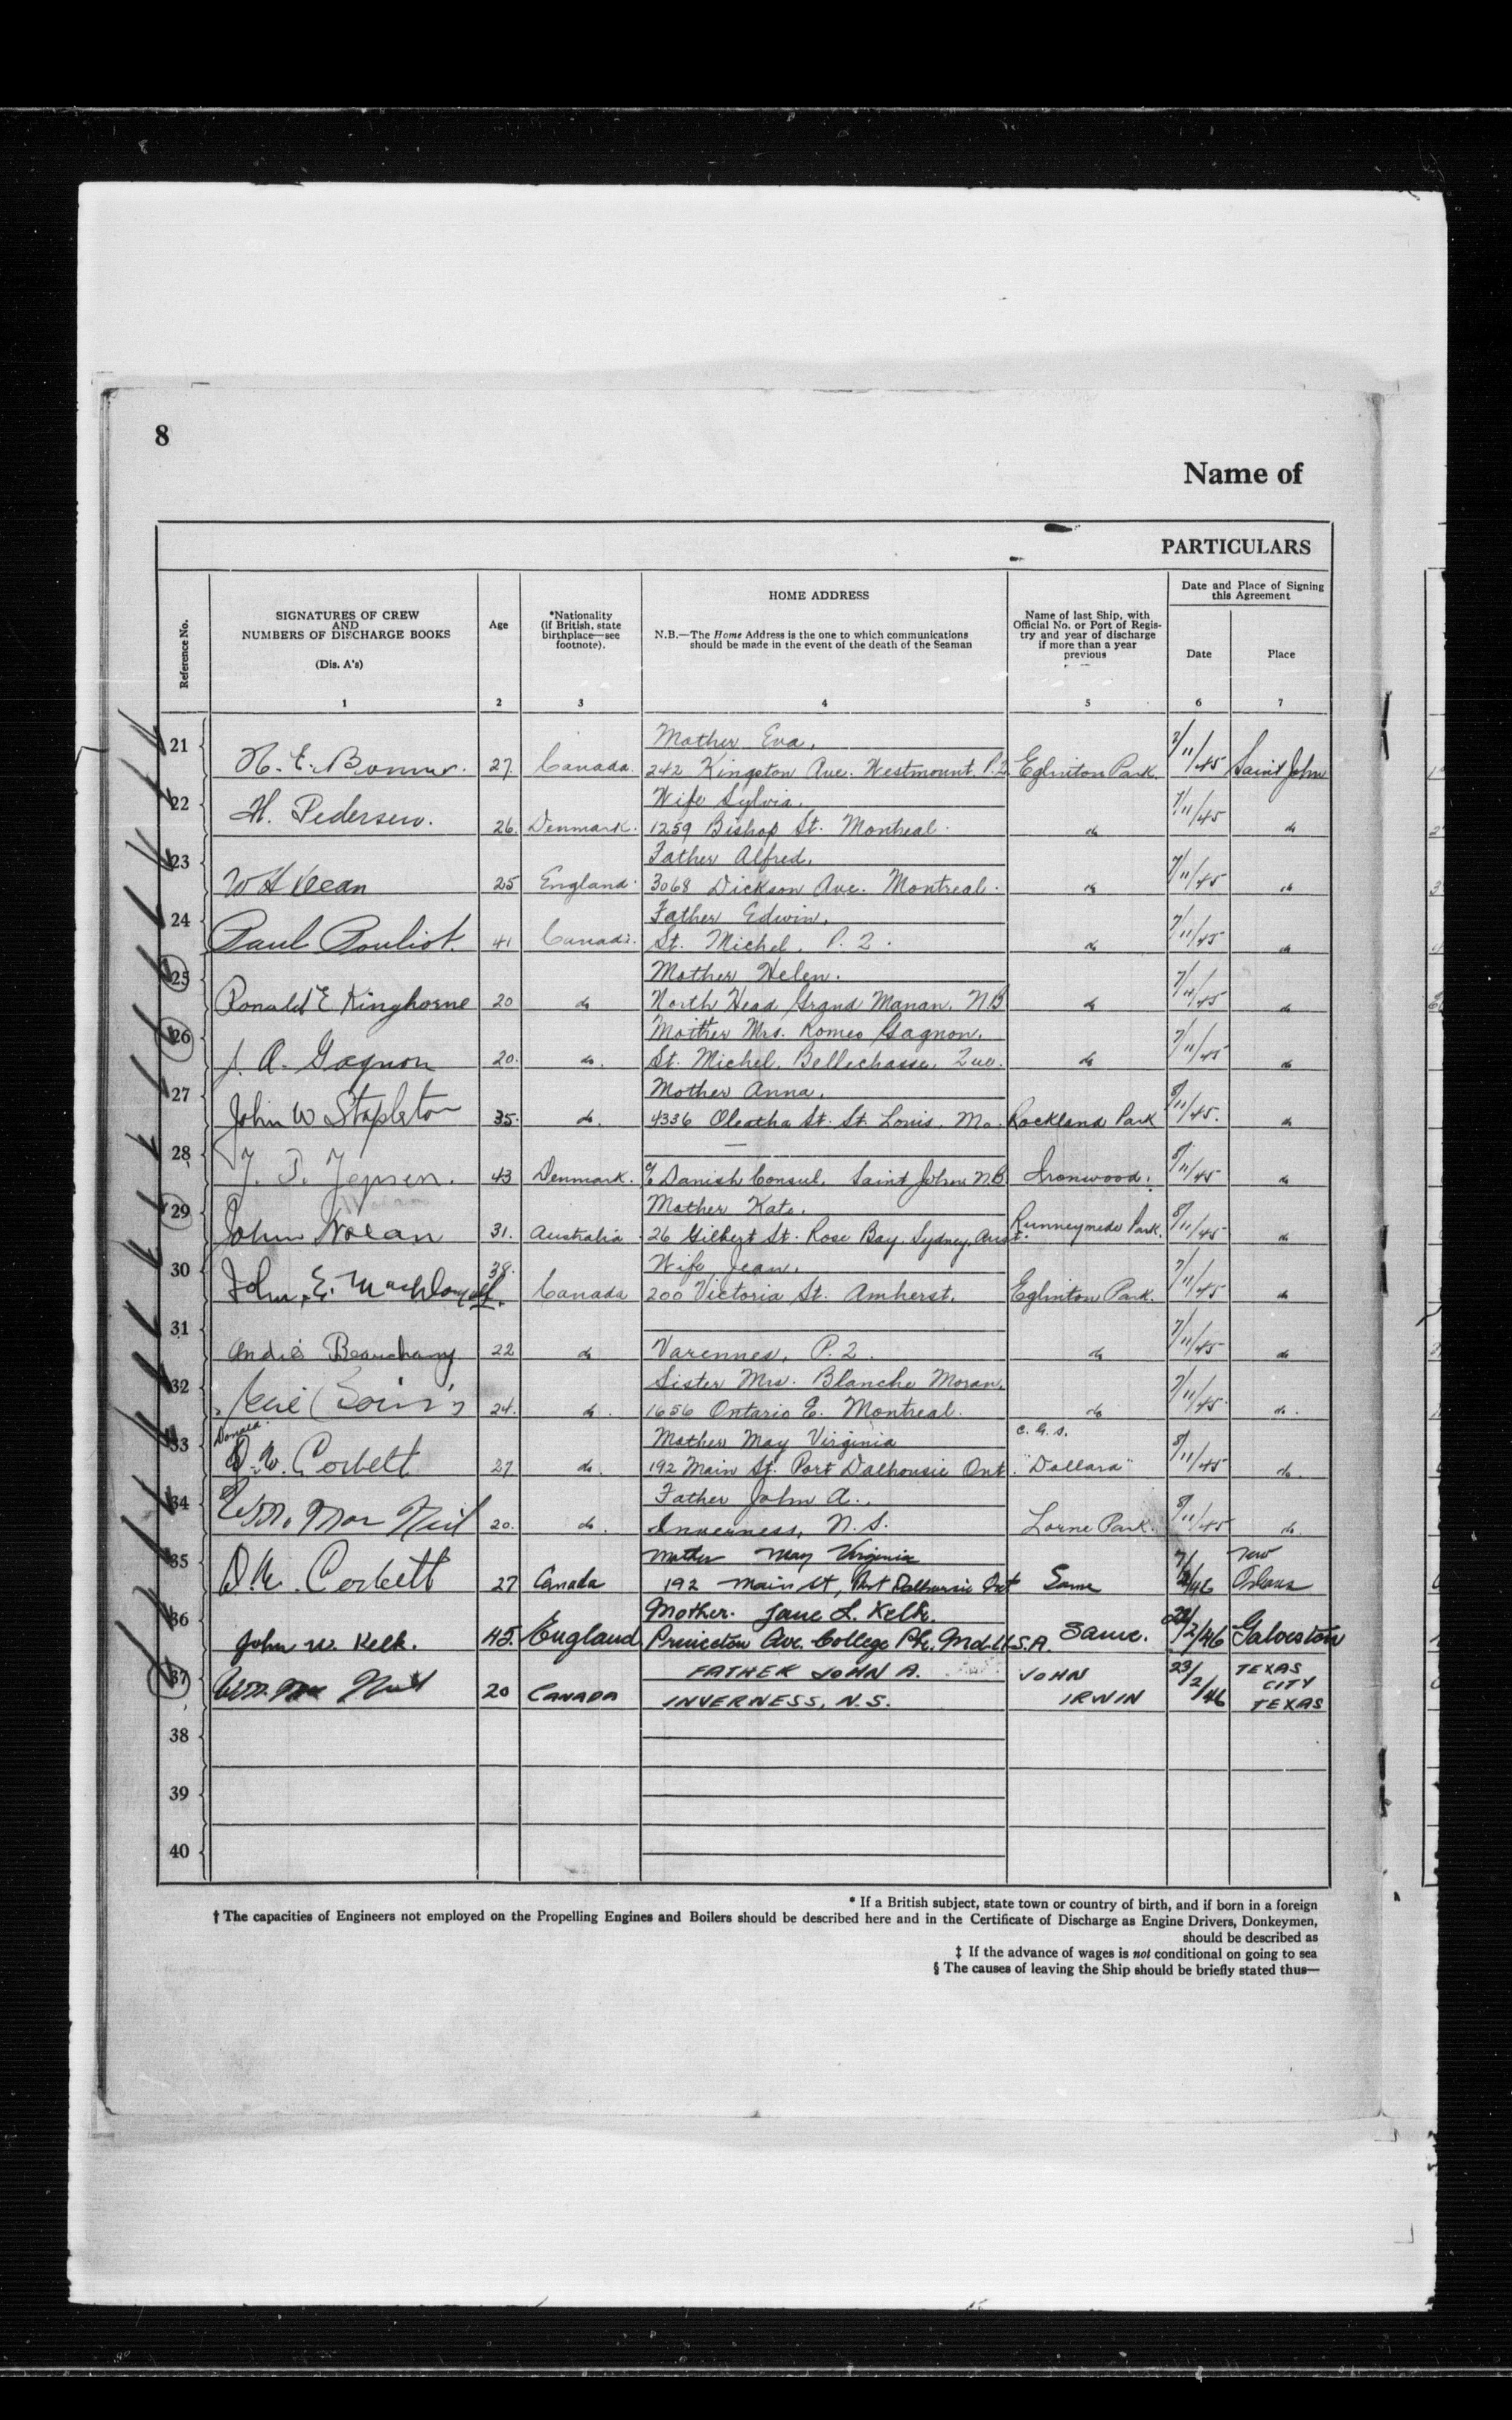 8
Name of
PARTICULARS
Reference No.
SIGNATURES OF CREW
AND
NUMBERS OF DISCHARGE BOOKS
(Dis. A's)
1
Age
2
*Nationality
(if British, state
birthplace—see
footnote).
3
HOME ADDRESS
N.B.—The Home Address is the one to which communications
should be made in the event of the death of the Seaman
4
Name of last Ship, with
Official No. or Port of Regis-
try and year of discharge
if more than a year
previous
5
Date and Place of Signing
this Agreement
Date
6
Place
7
Mother Eva.
21 27 Canada. 242 Kingston Ave. Westmount. P.Q Eglinton Park. 7/11/45 Saint John
Wife Sylvia.
22 H. Pedersen. 26. Denmark. 1259 Bishop St. Montreal. do 7/11/45 do
Father Alfred.
23 W H Dean 25 England. 3068 Dickson Ave. Montreal. do 7/11/45 do
Father Edwin.
24 Paul Pouliot. 41 Canada. St. Michel. P.Q. do 7/11/45 do
Mother Helen.
25 Ronald E Kinghorne 20 do North Head Grand Manan. N.B do 7/11/45 do
Mother Mrs. Romeo Gagnon.
26 J. A. Gagnon 20. do. St. Michel. Bellechasse. Que. do 7/11/45 do
Mother Anna.
27 John W Stapleton 35. do. 4336 Oleatha St. St. Louis. Mo. Rockland Park 8/11/45. do
28 J. P. Jepsen. 43 Denmark. c/o Danish Consul. Saint John N.B. Ironwood. 8/11/45 do
Mother Kate.
29 John Nolan 31. Australia 26 Gilbert St. Rose Bay. Sydney. Aust. Runneymede Park. 8/11/45 do
Wife Jean.
30 John. E. 38. Canada 200 Victoria St. Amherst. Eglinton Park. 7/11/45 do
31 André Beauchamp 22 do Varennes, P.Q. do 7/11/45 do
Sister Mrs. Blanche Moran.
32 24. do. 1656 Ontario E. Montreal. do 7/11/45 do.
Donald. Mother May Virginia C.G.S.
33 D. W. Corbett 27 do. 192 Main St. Port Dalhousie Ont. "Dollard" 8/11/45 do.
Father John A..
34 Wm. Mac Neil 20. do. Inverness, N.S. Lorne Park. 8/11/45 do.
Mother May Virginia New
35 D.W. Corbett 27 Canada 192 Main St, Port Dalhousie Ont Same /46 Orleans
Mother. Jane L. Kelk.
36 John W. Kelk. 45. England Princeton Ave. College Pk. Md. U.S.A. Same. 22/2/46 Galveston
FATHER JOHN A. JOHN TEXAS CITY
37 Wm. Mac Neil 20 CANADA INVERNESS, N.S. IRWIN 23/2/46 TEXAS
38
39
40
* If a British subject, state town or country of birth, and if born in a foreign
† The capacities of Engineers not employed on the Propelling Engines and Boilers should be described here and in the Certificate of Discharge as Engine Drivers, Donkeymen,
should be described as
‡ If the advance of wages is not conditional on going to sea
§ The causes of leaving the Ship should be briefly stated thus—